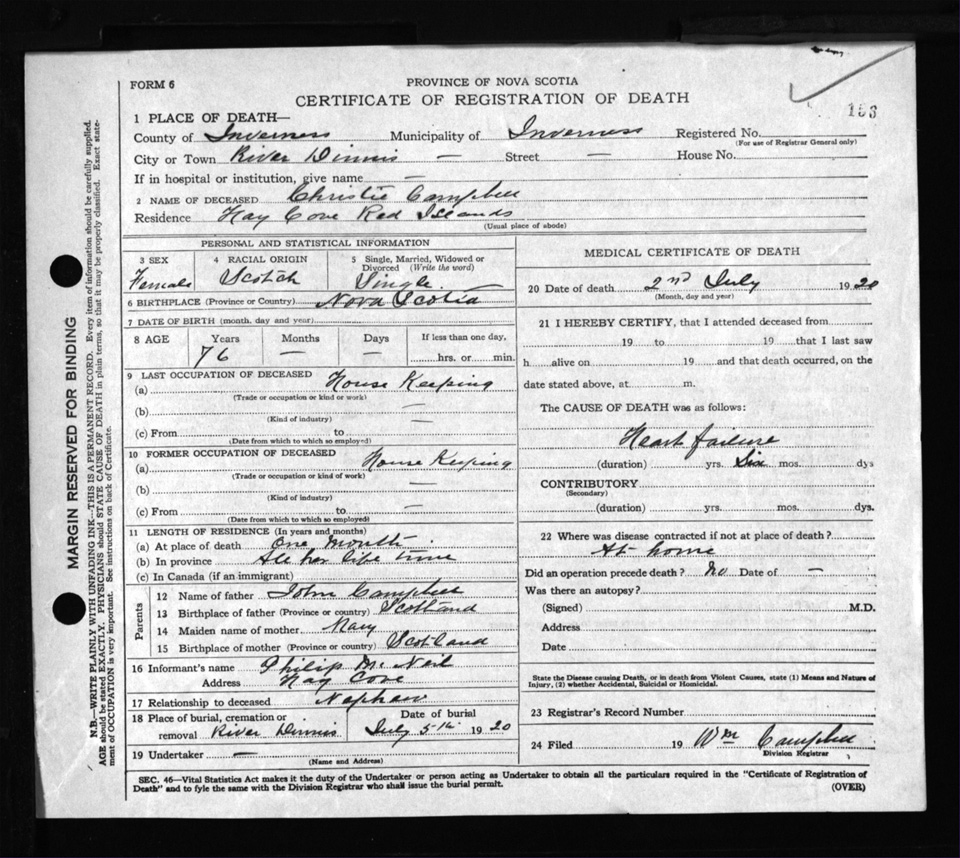 FORM 6
PROVINCE OF NOVA SCOTIA
CERTIFICATE OF REGISTRATION OF DEATH
153
1 PLACE OF DEATH—
County of Inverness Municipality of Inverness Registered No.
(For use of Registrar General only)
City or Town River Dinnis — Street — House No.
If in hospital or institution, give name —
2 NAME OF DECEASED Christie Campbell
Residence Hay Cove Red Islands
(Usual place of abode)
PERSONAL AND STATISTICAL INFORMATION
3 SEX Female
4 RACIAL ORIGIN Scotch
5 Single, Married, Widowed or Divorced (Write the word) Single
6 BIRTHPLACE (Province or Country) Nova Scotia
7 DATE OF BIRTH (month, day and year)
8 AGE Years Months Days If less than one day,
76 — — hrs. or min.
9 LAST OCCUPATION OF DECEASED House Keeping
(a)
(Trade or occupation or kind or work)
(b) —
(Kind of industry)
(c) From to —
(Date from which to which so employed)
10 FORMER OCCUPATION OF DECEASED House Keeping
(a)
(Trade or occupation or kind of work)
(b) —
(Kind of industry)
(c) From to —
(Date from which to which so employed)
11 LENGTH OF RESIDENCE (In years and months)
(a) At place of death One Month
(b) In province All her life time
(c) In Canada (if an immigrant)
Parents
12 Name of father John Campbell
13 Birthplace of father (Province or country) Scotland
14 Maiden name of mother Mary
15 Birthplace of mother (Province or country) Scotland
16 Informant's name Philip McNeil
Address Hay Cove
17 Relationship to deceased Nephew
18 Place of burial, cremation or removal River Dinnis Date of burial July 5th 1920
19 Undertaker —
(Name and Address)
MEDICAL CERTIFICATE OF DEATH
20 Date of death 2nd July 1920
(Month, day and year)
21 I HEREBY CERTIFY, that I attended deceased from
19 to 19 that I last saw
h alive on 19 and that death occurred, on the
date stated above, at m.
The CAUSE OF DEATH was as follows:
Heart failure
(duration) yrs. Six mos. dys
CONTRIBUTORY
(Secondary)
(duration) yrs. mos. dys.
22 Where was disease contracted if not at place of death?
At home
Did an operation precede death? No Date of —
Was there an autopsy?
(Signed) M.D.
Address
Date
State the Disease causing Death, or in death from Violent Causes, state (1) Means and Nature of
Injury, (2) whether Accidental, Suicidal or Homicidal.
23 Registrar's Record Number
24 Filed 19 Wm Campbell
Division Registrar
SEC. 46—Vital Statistics Act makes it the duty of the Undertaker or person acting as Undertaker to obtain all the particulars required in the "Certificate of Registration of
Death" and to fyle the same with the Division Registrar who shall issue the burial permit.
(OVER)
MARGIN RESERVED FOR BINDING
N.B.—WRITE PLAINLY WITH UNFADING INK—THIS IS A PERMANENT RECORD. Every item of information should be carefully supplied.
AGE should be stated EXACTLY. PHYSICIANS should STATE CAUSE OF DEATH in plain terms, so that it may be properly classified. Exact state-
ment of OCCUPATION is very important. See instructions on back of Certificate.